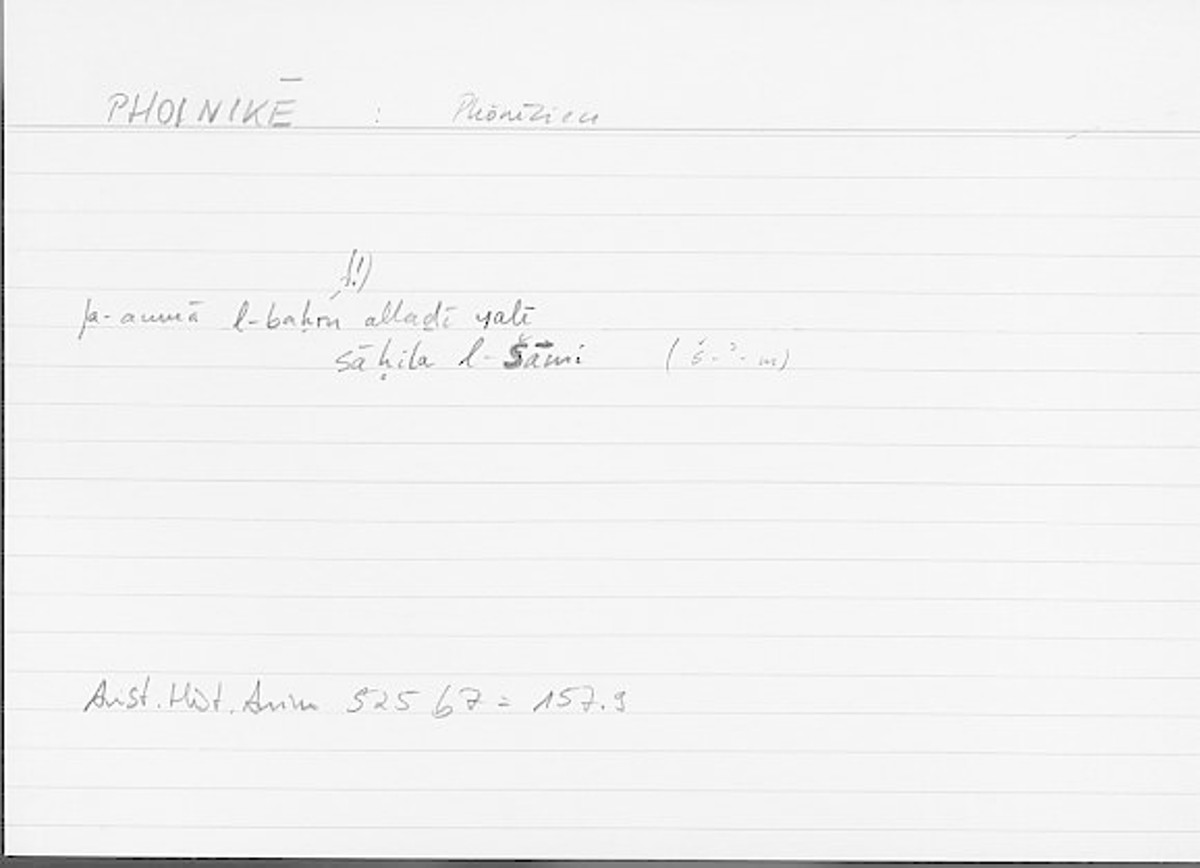 PHOINIKĒ : Phönizien
(!)
fa-ammā l-baḥru allaḏī yalī
sāḥila l-Šāmi (š-ʾ-m)
Arist. Hist. Anim 525 b7 = 157.9